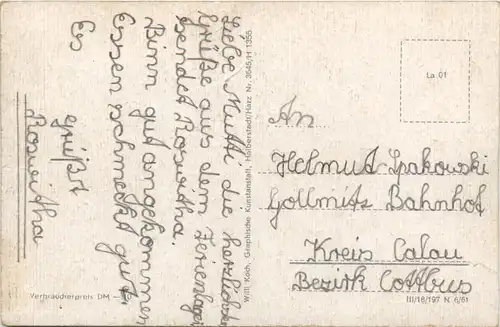 Liebe Mutti die herzlichsten
Grüße aus dem Ferienlager
sendet Roswitha.
Binn gut angekommen
Essen schmeckt gut.
Es
grüßt
Roswitha
Verbraucherpreis DM
Willi Koch, Graphische Kunstanstalt, Halberstadt/Harz Nr. 3645/H 1355
La 01
An
Helmut Spakowski
Gollmitz Bahnhof
Kreis Calau
Bezirk Cottbus
III/18/197 N 6/61